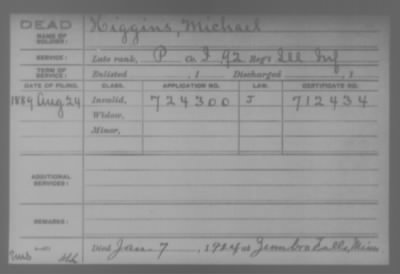 DEAD
NAME OF SOLDIER: Higgins, Michael
SERVICE: Late rank, P Co. I 92 Reg't Ill Inf
TERM OF SERVICE: Enlisted , 1 Discharged , 1
DATE OF FILING. CLASS. APPLICATION NO. LAW. CERTIFICATE NO.
1889 Aug 24 Invalid, 724300 J 712434
Widow,
Minor,
ADDITIONAL SERVICES:
REMARKS:
Died Jan 7, 1924 at Falls, Minn